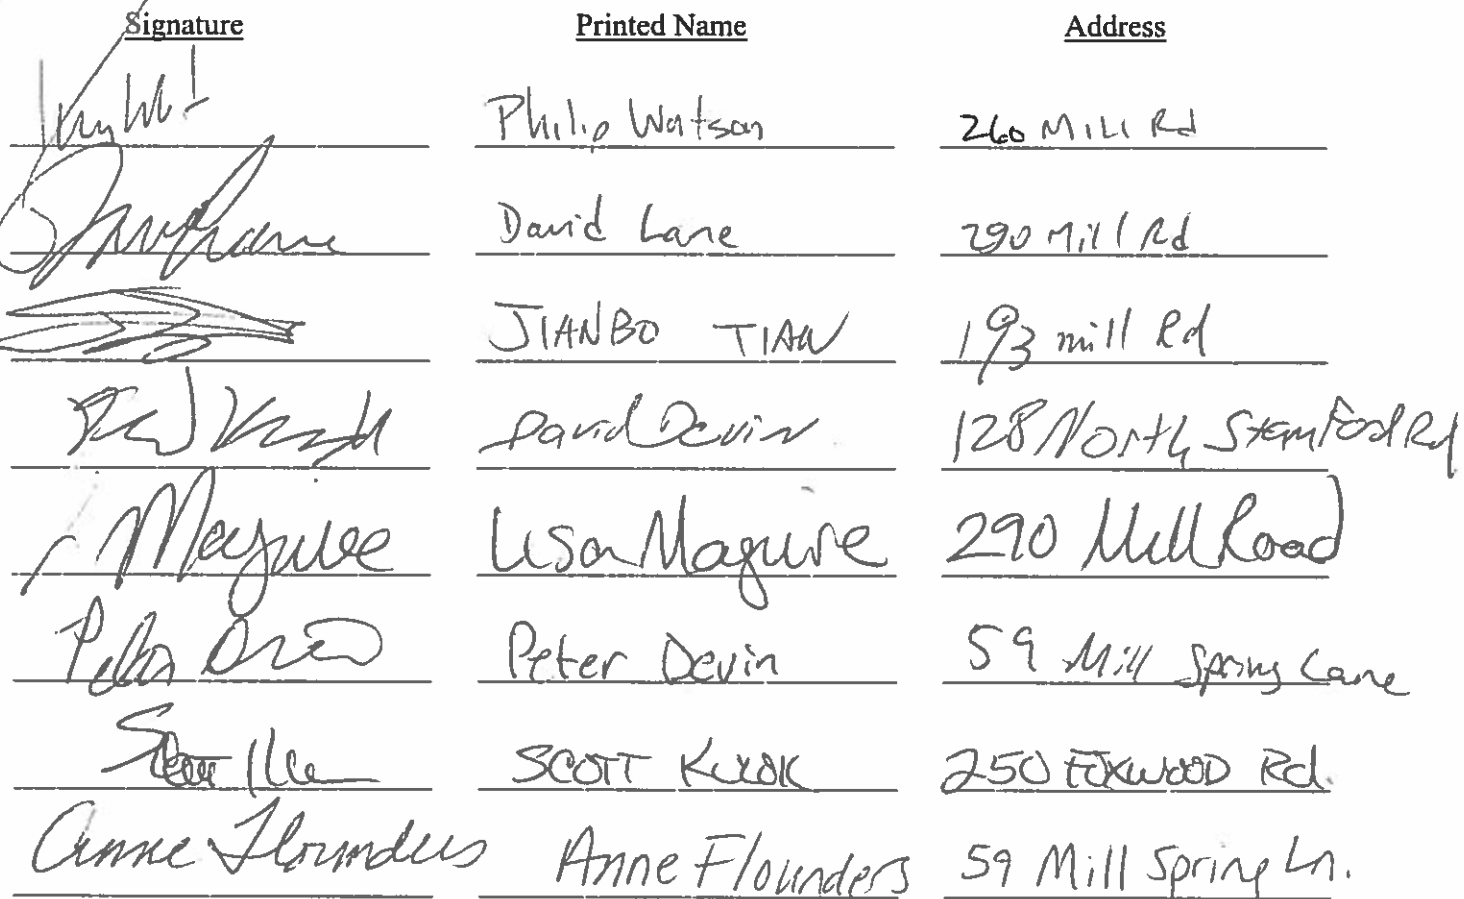 Signature Printed Name Address
Philip Watson 260 Mill Rd
David Lane 290 Mill Rd
JIANBO TIAN 193 mill Rd
David Devin 128 North Stamford Rd
Maguire Lisa Maguire 290 Mill Road
Peter Devin Peter Devin 59 Mill Spring Lane
Scott SCOTT 250 FOXWOOD Rd.
Anne Flounders Anne Flounders 59 Mill Spring Ln.